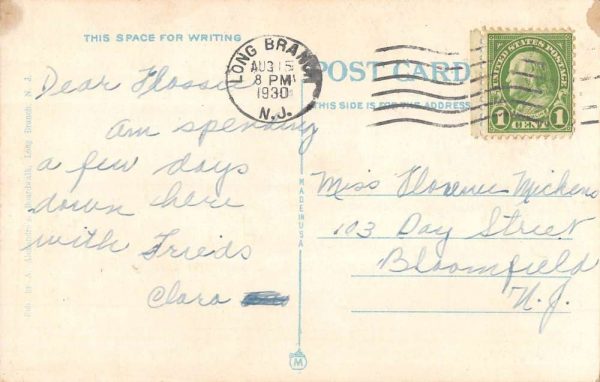 THIS SPACE FOR WRITING
Dear Flossie
am spending
a few days
down here
with Frieds
Clara
LONG BRANCH
AUG 15
8 PM
1930
N.J.
POST CARD
THIS SIDE IS FOR THE ADDRESS
UNITED STATES POSTAGE
1 CENT 1
Miss Florence Mickens
103 Day Street
Bloomfield
N.J.
MADE IN USA
M
Boardwalk, Long Branch, N. J.